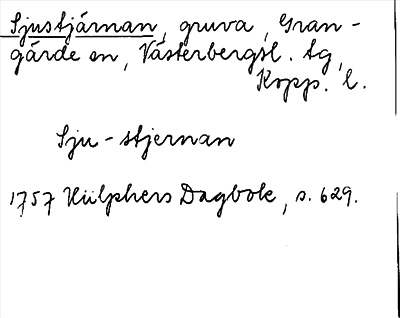 Sjustjärnan, gruva, Gran-
gärde sn, Västerbergsl. tg,
Kopp. l.
Sju-stjernan
1757 Hülphers Dagbok, s. 629.